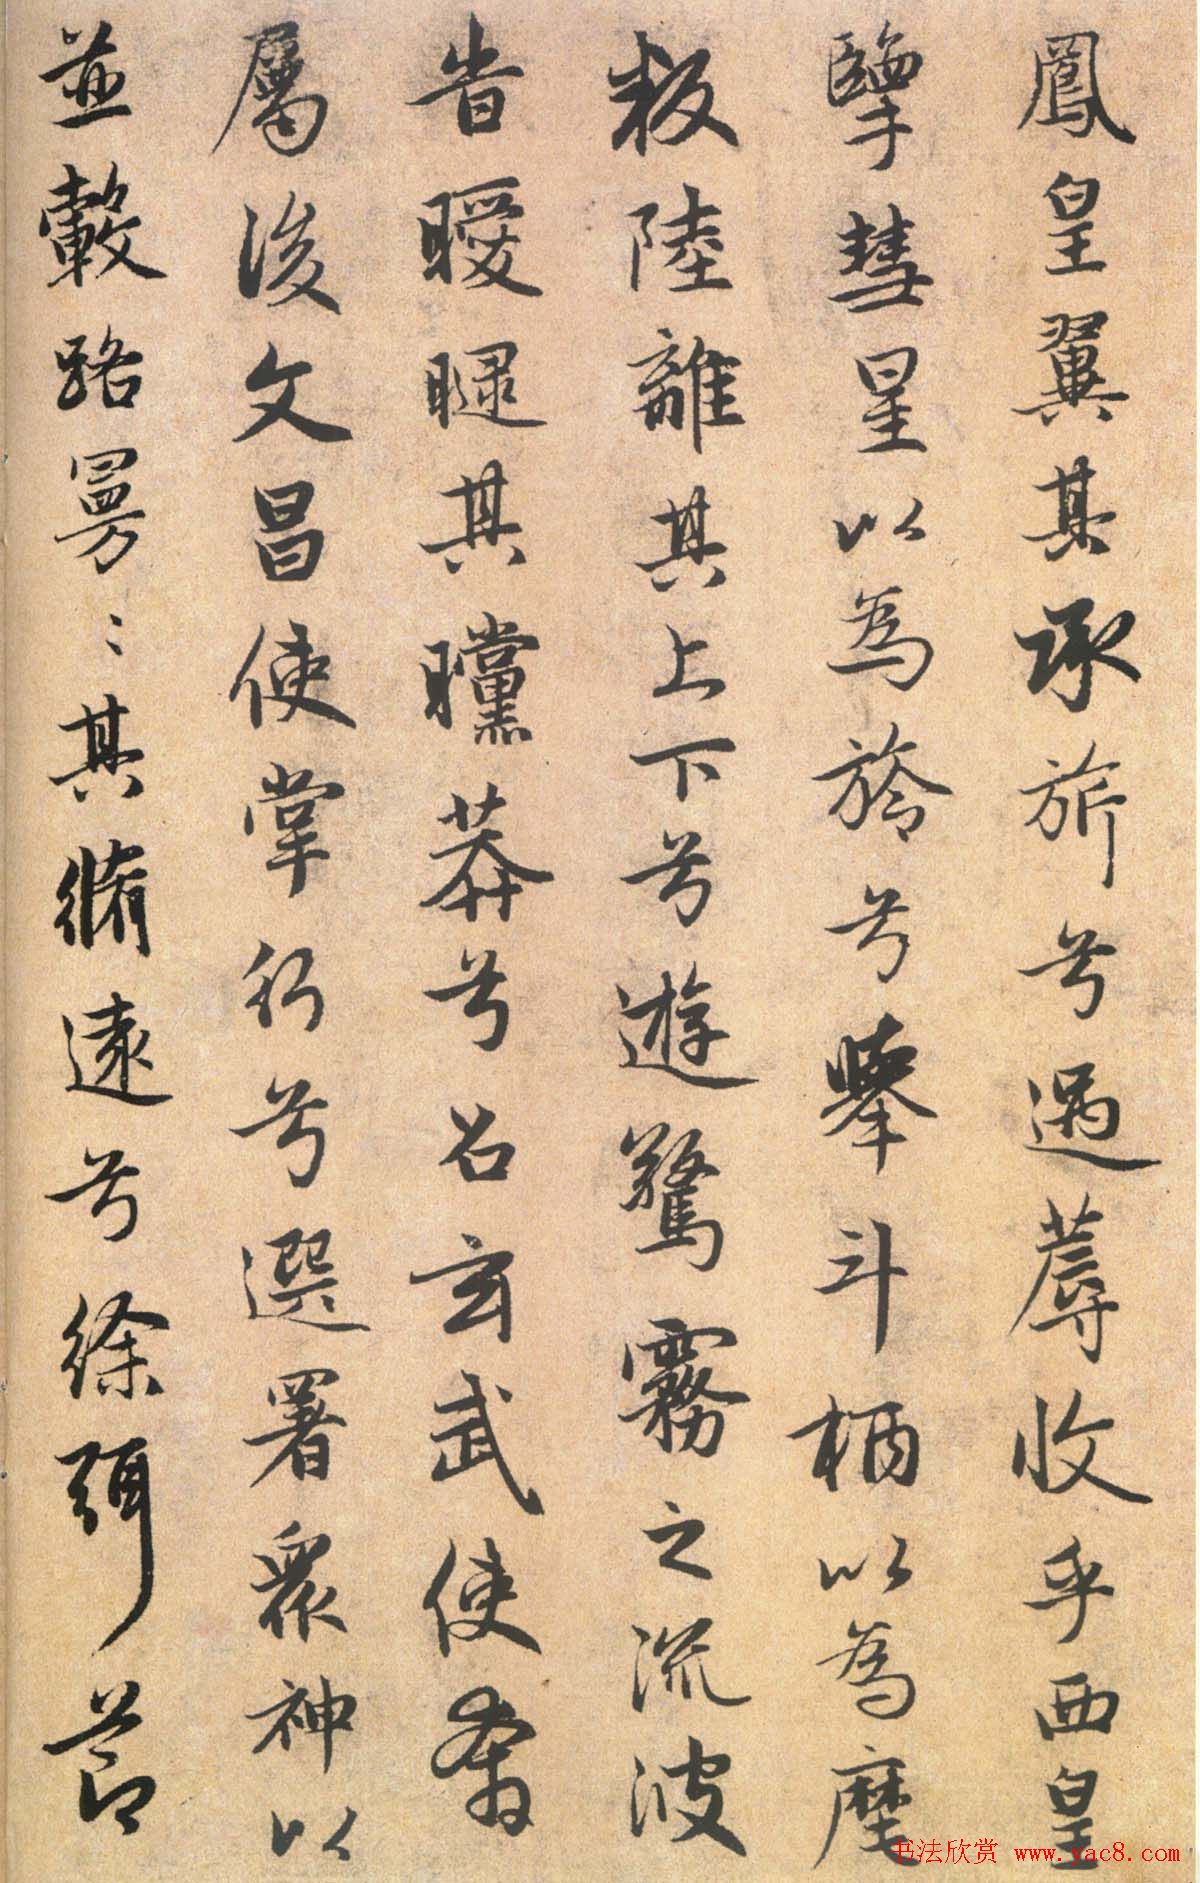 鳳皇翼其承旂兮遇蓐收乎西皇
擥彗星以為旍兮舉斗柄以為麾
叛陸離其上下兮遊驚霧之流波
旹曖曃其曭莽兮召玄武使奔
屬後文昌使掌行兮選署衆神以
並轂路曼〻其脩遠兮徐弭節
书法欣赏 www.yac8.com